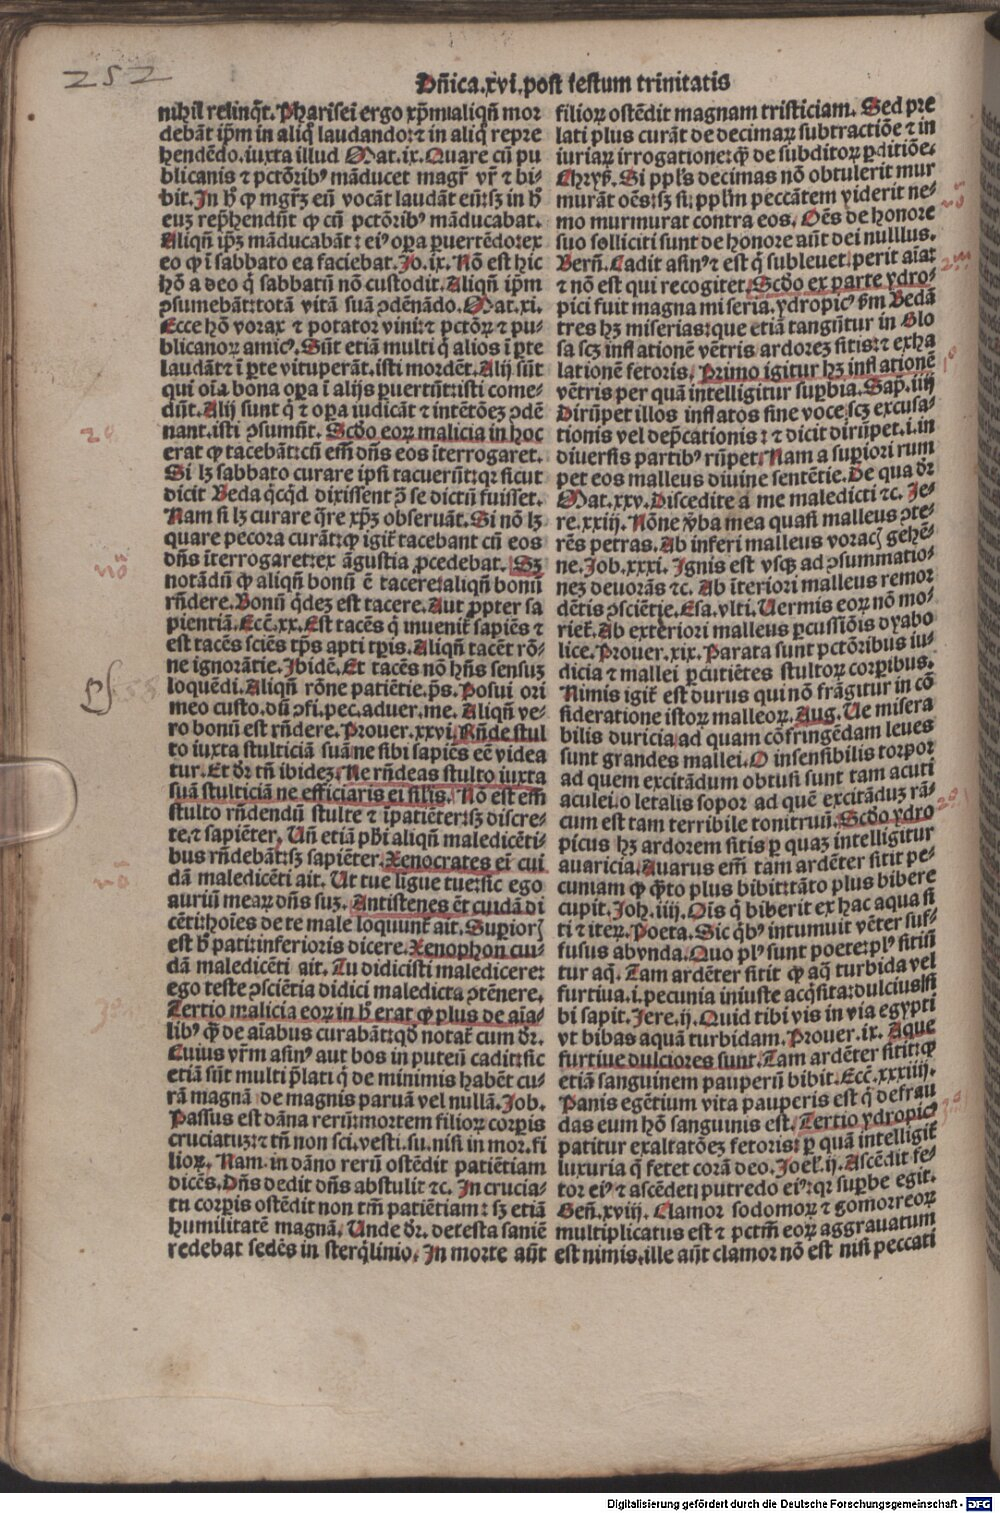 252
Dñica.xvi.post festum trinitatis
nihil relinq̃t. Pharisei ergo xp̃m aliqñ mor
debāt ip̃m in aliq̃ laudando: ⁊ in aliq̃ repre
hendēdo. iuxta illud Mat. ix. Quare cū pu
blicanis ⁊ pctōrib⁹ māducet magr̃ vr̃ ⁊ bi-
bit. In h̄ ꝙ mgr̃ꝫ eū vocāt laudāt eū: sꝫ in h̄
euꝫ rep̃hendūt ꝙ cū pctōrib⁹ māducabat.
Aliqñ ip̃ꝫ māducabāt: ei⁹ oꝑa ꝑuertēdo: ex
eo ꝙ ī sabbato ea faciebat. Jo. ix. Nō est hic
hō a deo q̄ sabbatū nō custodit. Aliqñ ip̃m
ↄsumebāt: totā vitā suā ↄdēnādo. Mat. xi.
Ecce hō vorax ⁊ potator vini: ⁊ pctōꝝ ⁊ pu-
blicanoꝝ amic⁹. Sūt etiā multi q̄ alios ī ꝑte
laudāt ⁊ ī ꝑte vituperāt. isti mordēt. Alij sūt
qui oīa bona oꝑa ī alijs ꝑuertūt: isti come-
dūt. Alij sunt q̄ ⁊ oꝑa iudicāt ⁊ intētōeꝫ ↄdē
nant. isti ↄsumūt. Scḋo eoꝝ malicia in hoc
erat ꝙ tacebāt: cū em̄ dñs eos īterrogaret.
Si lꝫ sabbato curare ipsi tacuerūt: qꝛ sicut
dicit Beda q̄cq̄d dixissent ꝯ̄ se dictū fuisset.
Nam si lꝫ curare q̄re xp̃ꝫ obseruāt. Si nō lꝫ
quare pecora curāt: ꝙ igit̄ tacebant cū eos
dñs īterrogaret: ex āgustia ꝓcedebat. Sꝫ
notādū ꝙ aliqñ bonū ē tacere: aliqñ bonū
rñdere. Bonū q̄deꝫ est tacere. Aut ꝓpter sa
pientiā. Eccē. xx. Est tacēs q̄ inuenit̄ sapiēs ⁊
est tacēs sciēs tp̃s apti tꝑis. Aliqñ tacēt rō-
ne ignorātie. Ibidē. Et tacēs nō hñs sensuꝫ
loquēdi. Aliqñ rōne patiētie. p̄s. Posui ori
meo custo. dū ↄfi. pec. aduer. me. Aliqñ ve-
ro bonū est rñdere. Prouer. xxvi. Rñde stul
to iuxta stulticiā suā ne sibi sapiēs eē videa
tur. Et dr̄ tñ ibideꝫ. Ne rñdeas stulto iuxta
suā stulticiā ne efficiaris ei silis. Nō est em̄
stulto rñdendū stulte ⁊ īpatiēter: sꝫ discre-
te. ⁊ sapiēter. Un̄ etiā pħi aliqñ maledicēti-
bus rñdebāt: sꝫ sapiēter. Xenocrates ei cui
dā maledicēti ait. Ut tue ligue tue: sic ego
auriū meaꝝ dñs suꝫ. Antistenes ēt cuidā di
cēti: hoīes de te male loquunt̄ ait. Superioꝝ
est h̄ pati: inferioris dicere. Xenophon cui-
dā maledicēti ait. Tu didicisti maledicere:
ego teste ↄsciētia didici maledicta ↄtēnere.
Tertio malicia eoꝝ in h̄ erat ꝙ plus de aīa-
lib⁹ q̄ꝫ de aīabus curabāt: qd̄ notat̄ cum dr̄.
Cuius vr̄m asin⁹ aut bos in puteū cadit: sic
etiā sūt multi p̄lati q̄ de minimis habēt cu-
rā magnā de magnis paruā vel nullā. Job.
Passus est dāna rerū: mortem filioꝝ corꝑis
cruciatuꝫ: ⁊ tñ non sci. vesti. su. nisi in mor. fi
lioꝝ. Nam in dāno rerū ostēdit patiētiam
dicēs. Dñs dedit dñs abstulit ⁊c. In crucia-
tu corꝑis ostēdit non tm̄ patiētiam: sꝫ etiā
humilitatē magnā. Unde dr̄. ꝙ testa saniē
redebat sedēs in sterq̄linio. In morte aūt
filioꝝ ostēdit magnam tristiciam. Sed pre
lati plus curāt de decimaꝝ subtractiōe ⁊ in
iuriaꝝ irrogatione: q̄ꝫ de subditoꝝ ꝑditiōe.
Chryß. Si ppl̄s decimas nō obtulerit mur
murāt oēs: sꝫ si ppl̄m peccātem viderit ne-
mo murmurat contra eos. Oēs de honore
suo solliciti sunt de honore aūt dei nulllus.
Berñ. Cadit asin⁹ ⁊ est q̄ subleuet perit aīa:
⁊ nō est qui recogitet. Scḋo ex parte ydro-
pici fuit magna miseria. ydropic⁹ ẜm Bedā
tres hꝫ miserias: que etiā tangūtur in Glo
sa scꝫ inflationē vētris ardoreꝫ sitis: ⁊ exha
lationē fetoris. Primo igitur hꝫ inflationē
vētris per quā intelligitur suꝑbia. Sap. iiij
Dirūpet illos inflatos sine voce scꝫ excusa-
tionis vel dep̃cationis: ⁊ dicit dirūpet. i. in
diuersis partib⁹ rūpet. Nam a suꝑiori rum
pet eos malleus diuine sentētie. De qua dr̄
Mat. xxv. Discedite a me maledicti ⁊c. Je-
re. xxiij. Nōne v̄ba mea quasi malleus ↄte-
rēs petras. Ab inferi malleus voraꝫ gehē-
ne. Job. xxxi. Ignis est vsqꝫ ad ↄsummatio-
neꝫ deuorās ⁊c. Ab īteriori malleus remor
dētis ↄsciētie. Esa. vlti. Uermis eoꝝ nō mo-
riet̄. Ab exteriori malleus ꝑcussiōis dyabo
lice. Prouer. xix. Parata sunt pctōribus iu-
dicia ⁊ mallei ꝑcutiētes stultoꝝ corꝑibus.
Nimis igit̄ est durus qui nō frāgitur in cō
sideratione istoꝝ malleoꝝ. Aug. Ue misera
bilis duricia ad quam cōfringēdam leues
sunt grandes mallei. O insensibilis torpor
ad quem excitādum obtusi sunt tam acuti
aculei: o letalis sopor ad quē excitāduꝫ rā-
cum est tam terribile tonitruū. Scḋo ydro
picus hꝫ ardorem sitis ꝑ quaꝫ intelligitur
auaricia. Auarus em̄ tam ardēter sitit pe-
cuniam ꝙ q̄to plus bibit: tāto plus bibere
cupit. Joh. iiij. Oīs q̄ biberit ex hac aqua si
ti ⁊ iteꝝ. Poeta. Sic q̄b⁹ intumuit vēter suf-
fusus abvnda. Quo pl⁹ sunt poete: pl⁹ sitiū
tur aq̄. Tam ardēter sitit ꝙ aq̄ turbida vel
furtiua. i. pecunia iniuste acq̄sita: dulcius si
bi sapit. Jere. ij. Quid tibi vis in via egypti
vt bibas aquā turbidam. Prouer. ix. Aque
furtiue dulciores sunt. Tam ardēter sitit: ꝙ
etiā sanguinem pauperū bibit. Eccē. xxxiiij.
Panis egētium vita pauperis est q̄ defrau
das eum hō sanguinis est. Tertio ydropic⁹
patitur exaltatōeꝫ fetoris: ꝑ quā intelligit̄
luxuria q̄ fetet corā deo. Joel. ij. Ascēdit fe-
tor ei⁹ ⁊ ascēdet putredo ei⁹: qꝛ suꝑbe egit.
Geñ. xviij. Clamor sodomoꝝ ⁊ gomorreoꝝ
multiplicatus est ⁊ pctm̄ eoꝝ aggrauatum
est nimis. ille aūt clamor nō est nisi peccati
Digitalisierung gefördert durch die Deutsche Forschungsgemeinschaft - DFG